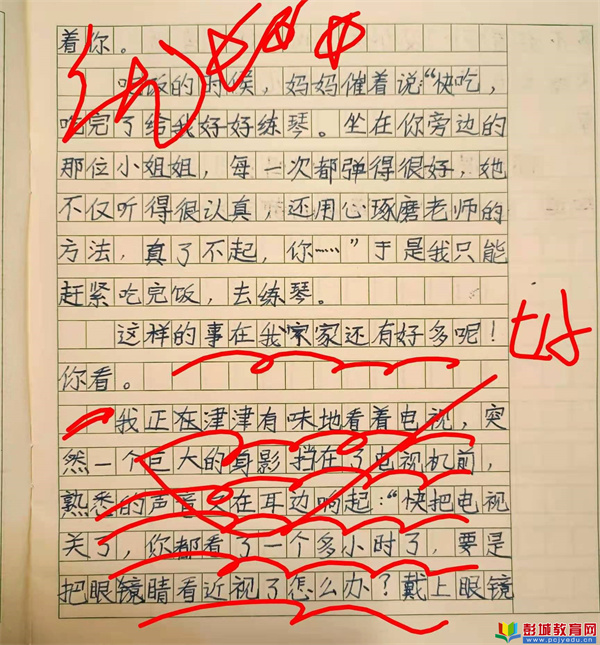 着你。
吃饭的时候，妈妈催着说“快吃，
吃完了给我好好练琴。坐在你旁边的
那位小姐姐，每一次都弹得很好，她
不仅听得很认真，还用心琢磨老师的
方法，真了不起，你……”于是我只能
赶紧吃完饭，去练琴。
这样的事在我家还有好多呢！
你看。
我正在津津有味地看着电视，突
然一个巨大的身影挡在了电视机前，
熟悉的声音又在耳边响起：“快把电视
关了，你都看了一个多小时了，要是
把眼镜睛看近视了怎么办？戴上眼镜
彭城教育网
www.pcjyedu.cn